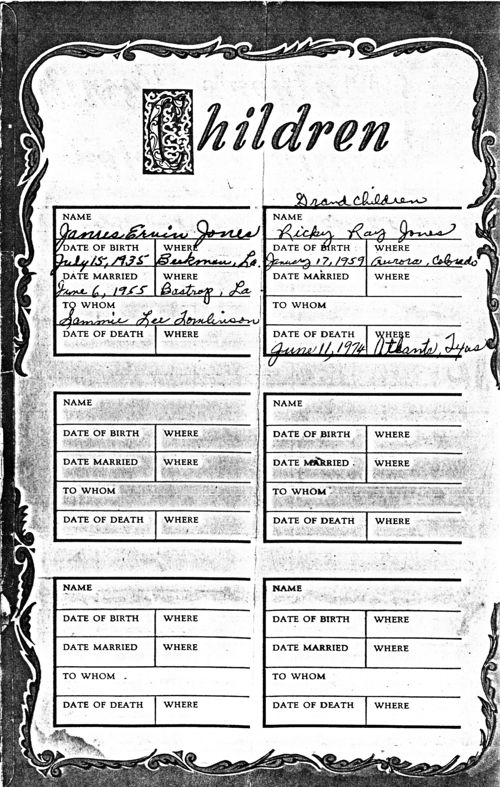 Children
Grand Children
NAME
James Ervin Jones
DATE OF BIRTH WHERE
July 15, 1935 Beekman, La.
DATE MARRIED WHERE
June 6, 1955 Bastrop, La
TO WHOM
Sammie Lee Tomlinson
DATE OF DEATH WHERE
NAME
Ricky Ray Jones
DATE OF BIRTH WHERE
January 17, 1959 Aurora, Colorado
DATE MARRIED WHERE
TO WHOM
DATE OF DEATH WHERE
June 11, 1974 Atlanta, Texas
NAME
DATE OF BIRTH WHERE
DATE MARRIED WHERE
TO WHOM
DATE OF DEATH WHERE
NAME
DATE OF BIRTH WHERE
DATE MARRIED WHERE
TO WHOM
DATE OF DEATH WHERE
NAME
DATE OF BIRTH WHERE
DATE MARRIED WHERE
TO WHOM
DATE OF DEATH WHERE
NAME
DATE OF BIRTH WHERE
DATE MARRIED WHERE
TO WHOM
DATE OF DEATH WHERE